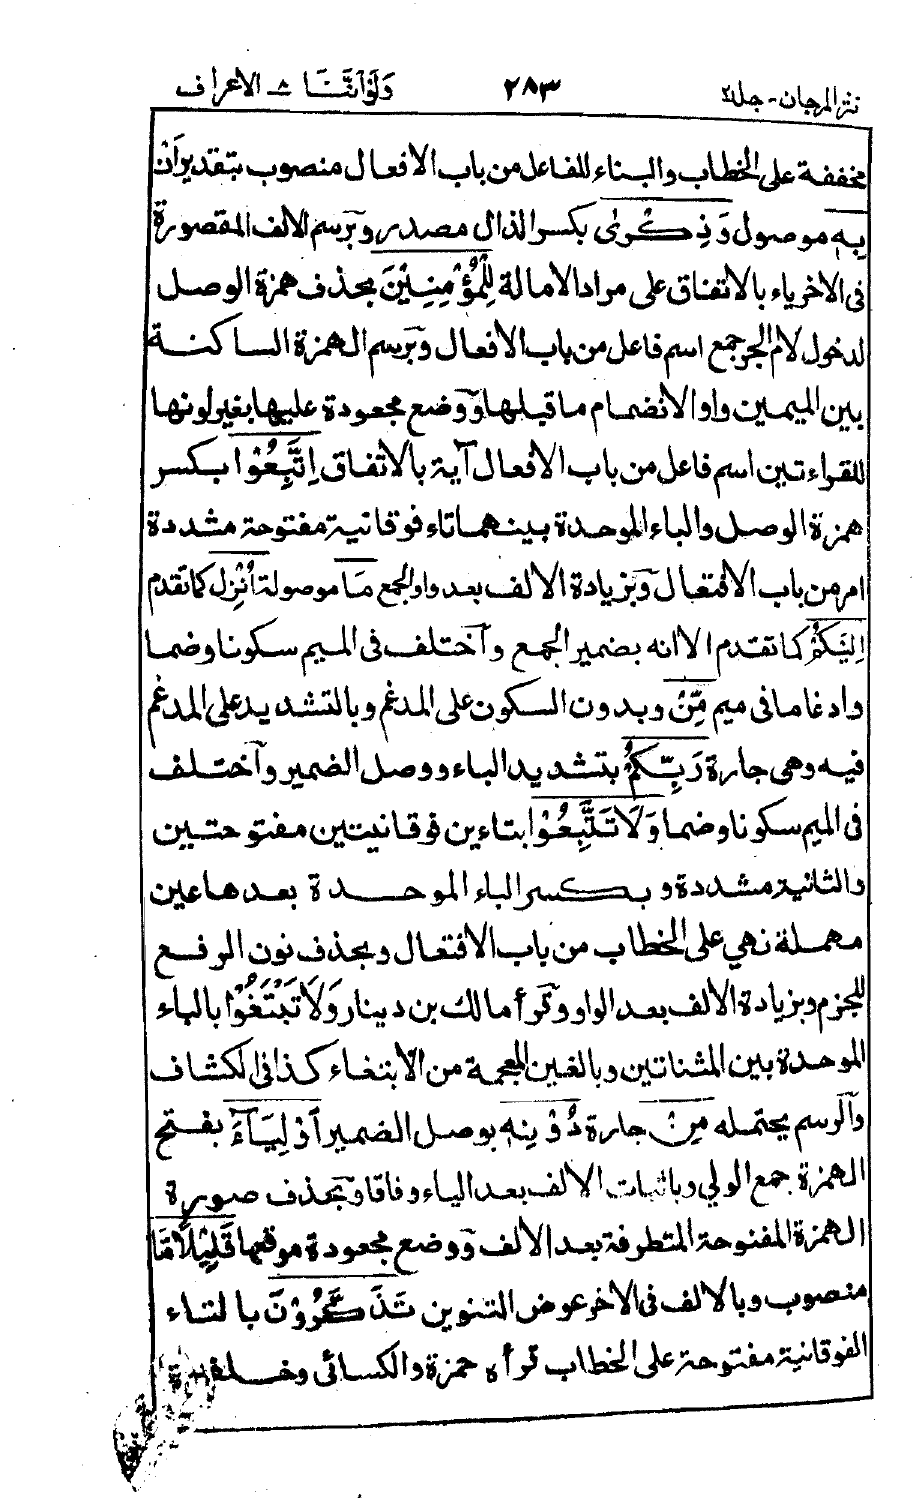 نثر المرجان - جلد ٢ ٢٨٣ وَلَوْ اَنَّنَا ٨ الاعراف
مخففة على الخطاب والبناء للفاعل من باب الافعال منصوب بتقدير اَنْ
بِهٖ موصول وَذِكْرٰى بكسر الذال مصدر وبرسم الالف المقصورة
فى الاخر ياء بالاتفاق على مراد الامالة لِلْمُؤْمِنِيْنَ بحذف همزة الوصل
لدخول لام الجر جمع اسم فاعل من باب الافعال وبرسم الهمزة الساكنة
بين الميمين واوا لانضمام ما قبلها ووضع مجعودة عليها بغير لونها
للقراءتين اسم فاعل من باب الافعال آية بالاتفاق اِتَّبِعُوْا بكسر
همزة الوصل والباء الموحدة بينهما تاء فوقانية مفتوحة مشددة
امر من باب الافتعال وبزيادة الالف بعد واو الجمع مَا موصولة اُنْزِلَ كما تقدم
اِلَيْكُمْ كما تقدم الا انه بضمير الجمع وآختلف فى الميم سكونا وضما
وادغاما فى ميم مِّنْ وبدون السكون على المدغم وبالتشديد على المدغم
فيه وهى جارة رَبِّكُمْ بتشديد الباء ووصل الضمير وآختلف
فى الميم سكونا وضما وَلَا تَتَّبِعُوْا بتاءين فوقانيتين مفتوحتين
والثانية مشددة وبكسر الباء الموحدة بعدها عين
مهملة نهي على الخطاب من باب الافتعال وبحذف نون الرفع
للجزم وبزيادة الالف بعد الواو وقرأ مالك بن دينار وَلَا تَبْتَغُوْا بالباء
الموحدة بين المثناتين وبالغين المعجمة من الابتغاء كذا فى الكشاف
وآلرسم يحتمله مِنْ جارة دُوْنِهٖ بوصل الضمير اَوْلِيَآءَ بفتح
الهمزة جمع الولي وباثبات الالف بعد الياء وفاقا وبحذف صورة
الهمزة المفتوحة المتطرفة بعد الالف ووضع مجعودة موقعها قَلِيْلًا مَّا
منصوب وبالالف فى الاخر عوض التنوين تَذَكَّرُوْنَ بالتاء
الفوقانية مفتوحة على الخطاب قرأه حمزة والكسائى وخلف